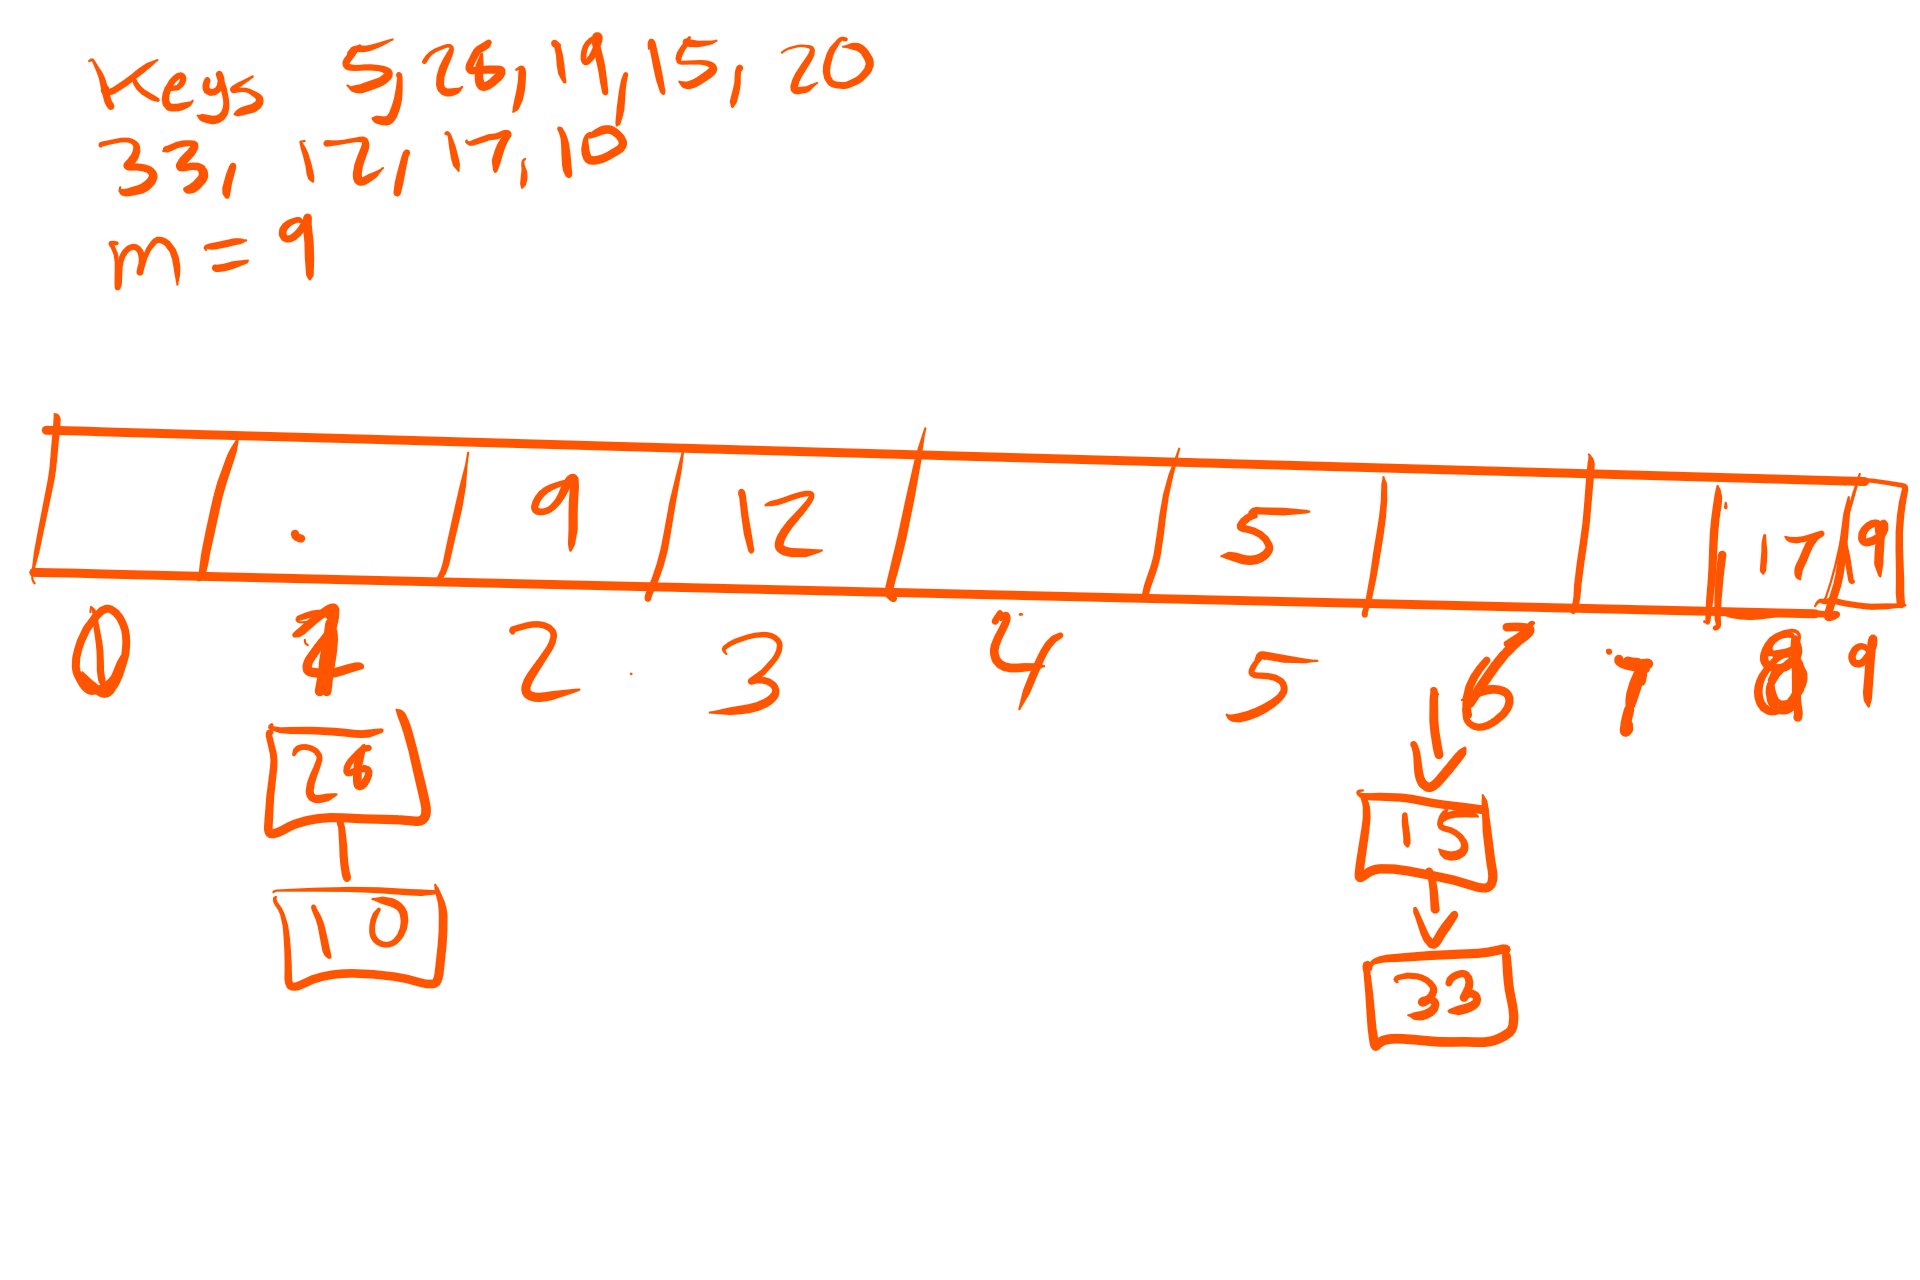 Keys 5, 28, 19, 15, 20
33, 12, 17, 10
m = 9
9 12 5 17 9
0 1 2 3 4 5 6 7 8 9
28 15
10 33